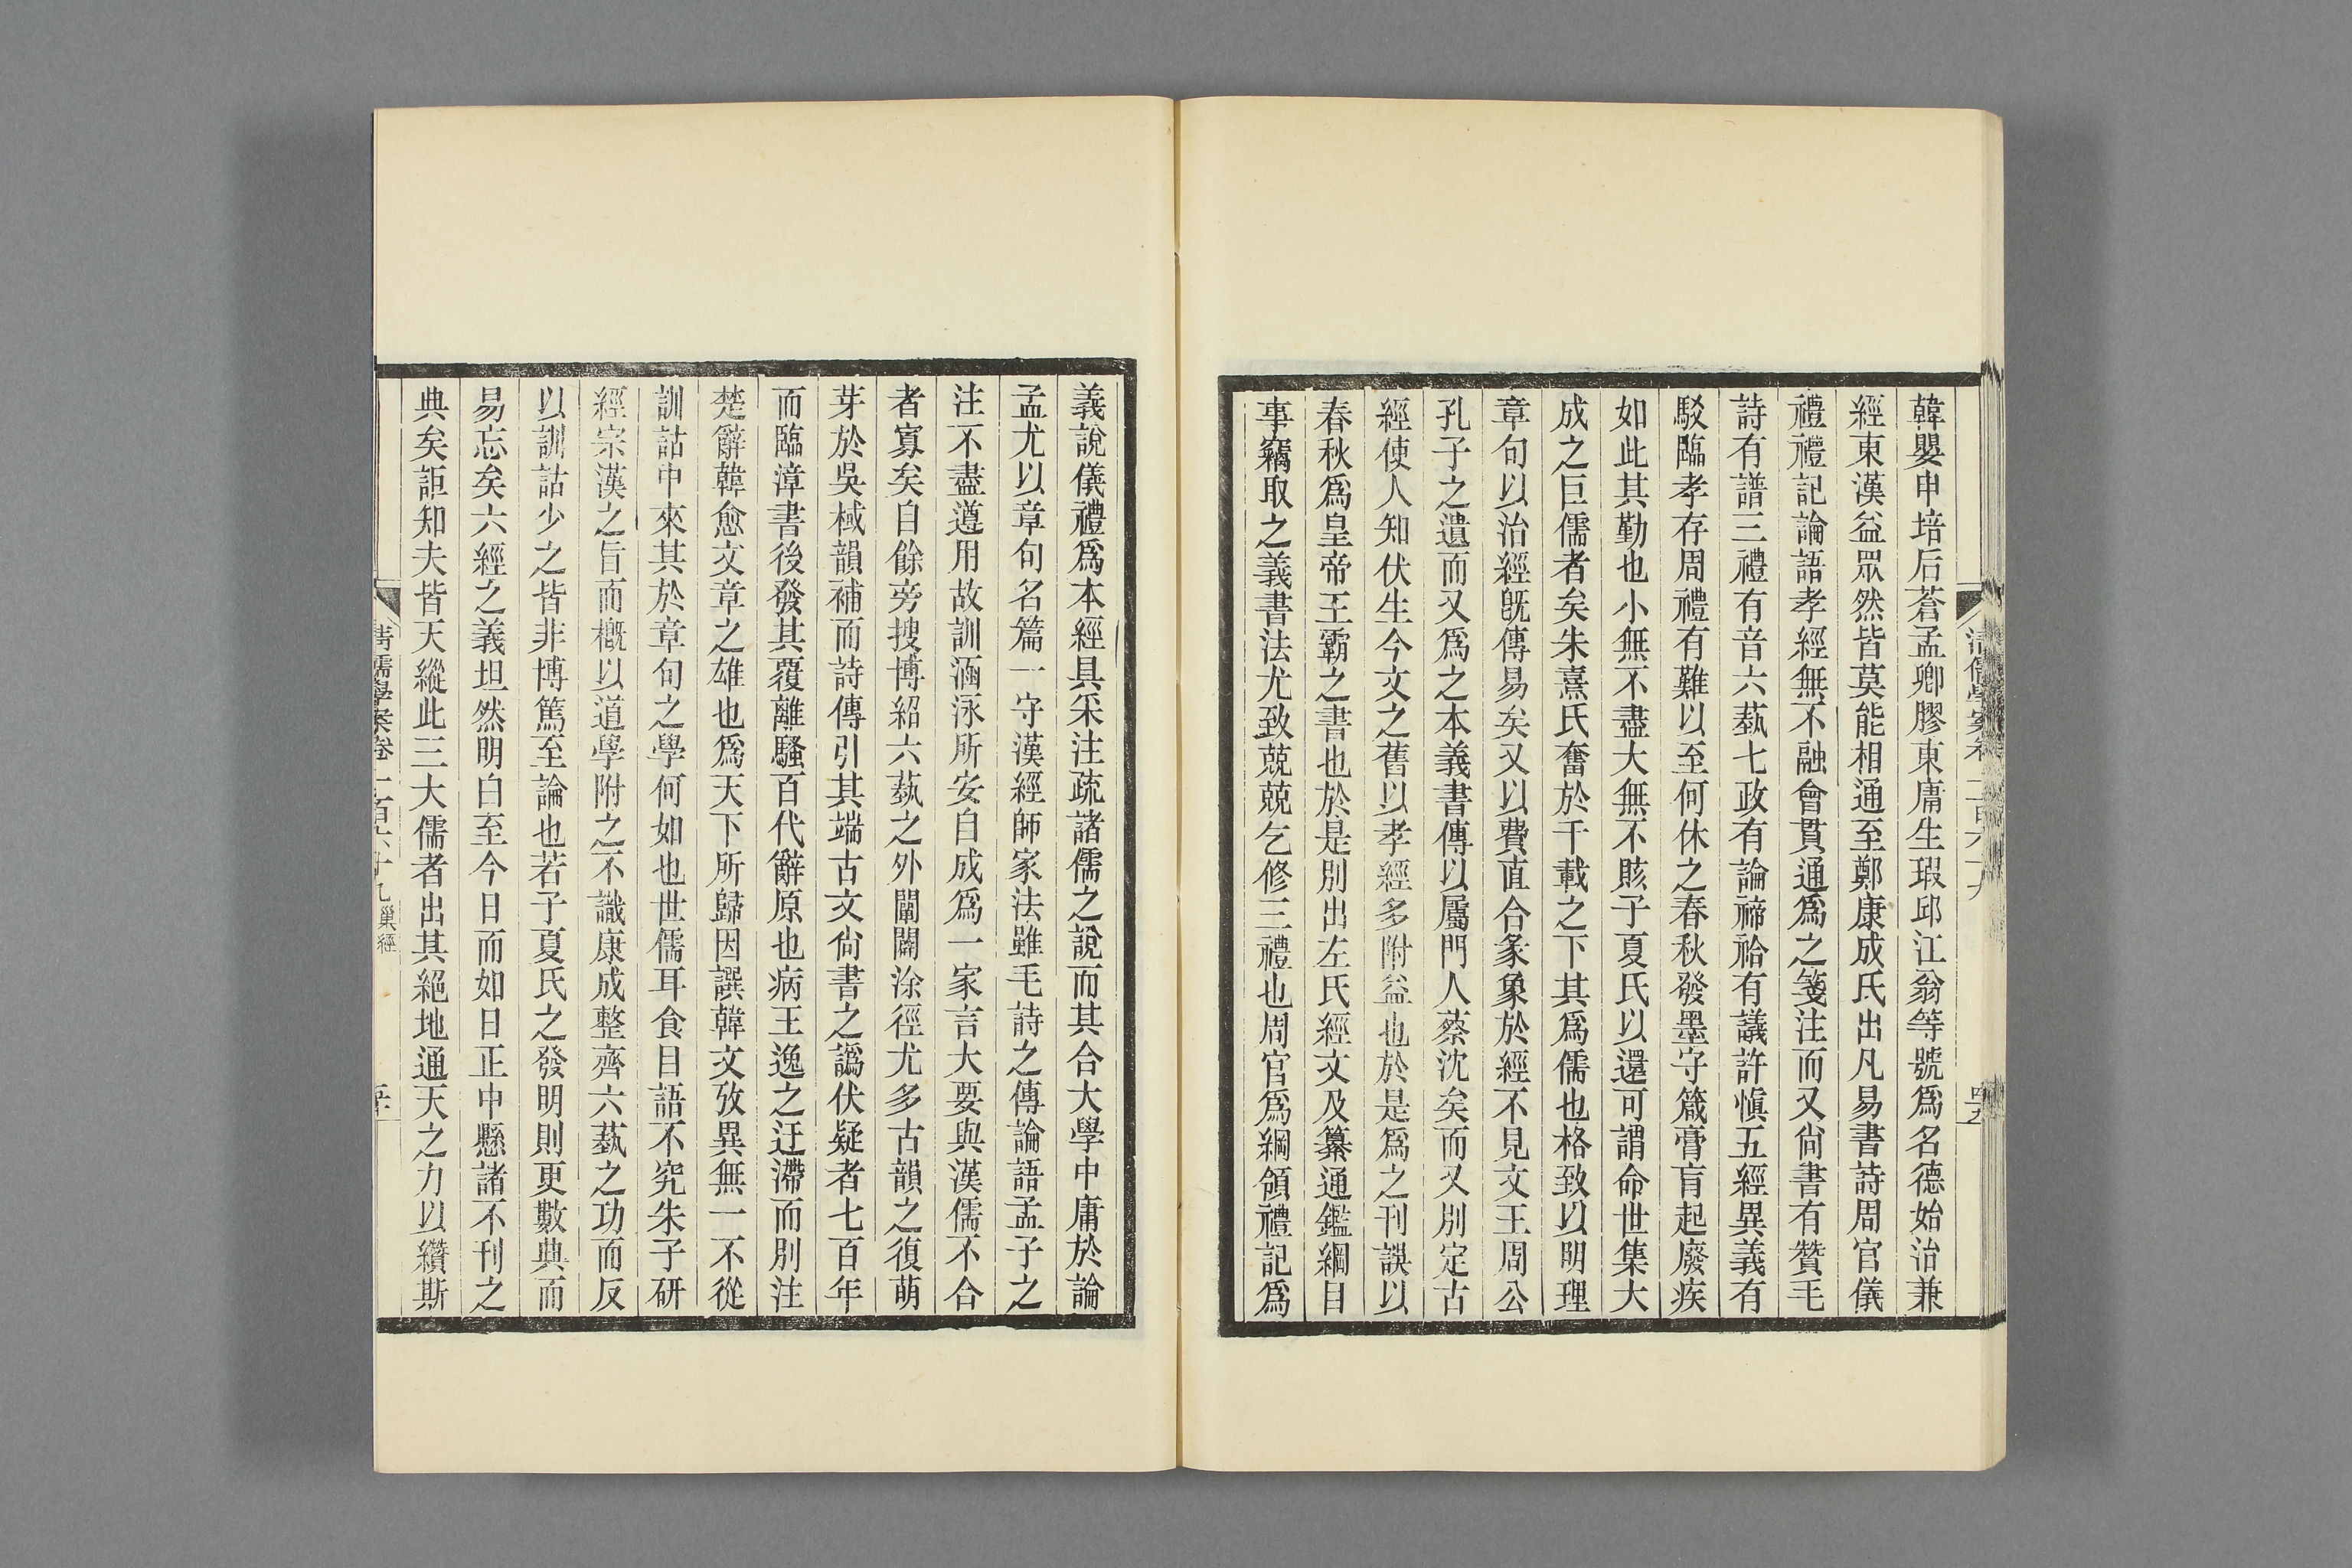 韓嬰申培后蒼孟卿膠東庸生瑕邱江翁等號爲名德始治兼
經東漢益眾然皆莫能相通至鄭康成氏出凡易書詩周官儀
禮禮記論語孝經無不融會貫通爲之箋注而又尙書有贊毛
詩有譜三禮有音六蓺七政有論禘祫有議許愼五經異義有
駁臨孝存周禮有難以至何休之春秋發墨守箴膏肓起廢疾
如此其勤也小無不盡大無不賅子夏氏以還可謂命世集大
成之巨儒者矣朱熹氏奮於千載之下其爲儒也格致以明理
章句以治經旣傳易矣又以費直合彖象於經不見文王周公
孔子之遺而又爲之本義書傳以屬門人蔡沈矣而又別定古
經使人知伏生今文之舊以孝經多附益也於是爲之刊誤以
春秋爲皇帝王霸之書也於是別出左氏經文及纂通鑑綱目
事竊取之義書法尤致兢兢乞修三禮也周官爲綱領禮記爲
義說儀禮爲本經具采注疏諸儒之說而其合大學中庸於論
孟尤以章句名篇一守漢經師家法雖毛詩之傳論語孟子之
注不盡遵用故訓涵泳所安自成爲一家言大要與漢儒不合
者寡矣自餘旁搜博紹六蓺之外闡闢涂徑尤多古韻之復萌
芽於吳棫韻補而詩傳引其端古文尙書之譌伏疑者七百年
而臨漳書後發其覆離騷百代辭原也病王逸之迂滯而別注
楚辭韓愈文章之雄也爲天下所歸因譔韓文攷異無一不從
訓詁中來其於章句之學何如也世儒耳食目語不究朱子研
經宗漢之旨而槪以道學附之不識康成整齊六蓺之功而反
以訓詁少之皆非博篤至論也若子夏氏之發明則更數典而
易忘矣六經之義坦然明白至今日而如日正中懸諸不刊之
典矣詎知夫皆天縱此三大儒者出其絕地通天之力以纘斯
清儒學案卷一百六十九 巢經